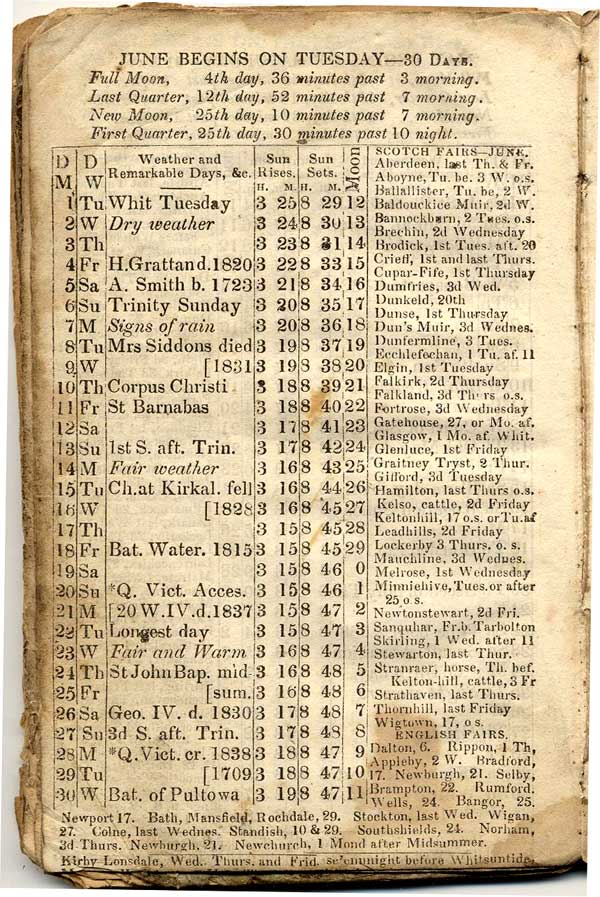 JUNE BEGINS ON TUESDAY—30 DAYS.
Full Moon, 4th day, 36 minutes past 3 morning.
Last Quarter, 12th day, 52 minutes past 7 morning.
New Moon, 25th day, 10 minutes past 7 morning.
First Quarter, 25th day, 30 minutes past 10 night.
D M. D W Weather and Remarkable Days, &c. Sun Rises. H. M. Sun Sets. H. M. Moon
1 Tu Whit Tuesday 3 25 8 29 12
2 W Dry weather 3 24 8 30 13
3 Th 3 23 8 31 14
4 Fr H.Grattan d.1820 3 22 8 33 15
5 Sa A. Smith b. 1723 3 21 8 34 16
6 Su Trinity Sunday 3 20 8 35 17
7 M Signs of rain 3 20 8 36 18
8 Tu Mrs Siddons died 3 19 8 37 19
9 W [1831 3 19 8 38 20
10 Th Corpus Christi 3 18 8 39 21
11 Fr St Barnabas 3 18 8 40 22
12 Sa 3 17 8 41 23
13 Su 1st S. aft. Trin. 3 17 8 42 24
14 M Fair weather 3 16 8 43 25
15 Tu Ch.at Kirkal. fell 3 16 8 44 26
16 W [1828 3 16 8 45 27
17 Th 3 15 8 45 28
18 Fr Bat. Water. 1815 3 15 8 45 29
19 Sa 3 15 8 46 0
20 Su *Q. Vict. Acces. 3 15 8 46 1
21 M [20 W.IV.d.1837 3 15 8 47 2
22 Tu Longest day 3 15 8 47 3
23 W Fair and Warm 3 16 8 47 4
24 Th St John Bap. mid 3 16 8 48 5
25 Fr [sum. 3 16 8 48 6
26 Sa Geo. IV. d. 1830 3 17 8 48 7
27 Su 3d S. aft. Trin. 3 17 8 48 8
28 M *Q.Vict. cr. 1838 3 18 8 47 9
29 Tu [1709 3 18 8 47 10
30 W Bat. of Pultowa 3 19 8 47 11
SCOTCH FAIRS—JUNE.
Aberdeen, last Th. & Fr.
Aboyne, Tu. be. 3 W. o.s.
Ballallister, Tu. be, 2 W.
Baldouckice Muir, 2d W.
Bannockburn, 2 Tues. o.s.
Brechin, 2d Wednesday
Brodick, 1st Tues. aft. 20
Crieff, 1st and last Thurs.
Cupar-Fife, 1st Thursday
Dumfries, 3d Wed.
Dunkeld, 20th
Dunse, 1st Thursday
Dun's Muir, 3d Wednes.
Dunfermline, 3 Tues.
Ecchlefechan, 1 Tu. af. 11
Elgin, 1st Tuesday
Falkirk, 2d Thursday
Falkland, 3d Thurs o.s.
Fortrose, 3d Wednesday
Gatehouse, 27, or Mo. af.
Glasgow, 1 Mo. af. Whit.
Glenluce, 1st Friday
Graitney Tryst, 2 Thur.
Gifford, 3d Tuesday
Hamilton, last Thurs o.s.
Kelso, cattle, 2d Friday
Keltonhill, 17 o.s. or Tu. af
Leadhills, 2d Friday
Lockerby 3 Thurs. o. s.
Mauchline, 3d Wednes.
Melrose, 1st Wednesday
Minniehive, Tues. or after
25 o s.
Newtonstewart, 2d Fri.
Sanquhar, Fr.b. Tarbolton
Skirling, 1 Wed. after 11
Stewarton, last Thur.
Stranraer, horse, Th. bef.
Kelton-hill, cattle, 3 Fr
Strathaven, last Thurs.
Thornhill, last Friday
Wigtown, 17, o s.
ENGLISH FAIRS.
Dalton, 6. Rippon, 1 Th,
Appleby, 2 W. Bradford,
17. Newburgh, 21. Selby,
Brampton, 22. Rumford.
Wells, 24. Bangor, 25.
Newport 17. Bath, Mansfield, Rochdale, 29. Stockton, last Wed. Wigan,
27. Colne, last Wednes. Standish, 10 & 29. Southshields, 24. Norham,
3d Thurs. Newburgh, 21. Newchurch, 1 Mond after Midsummer.
Kirby Lonsdale, Wed. Thurs. and Frid. se'ennight before Whitsuntide.